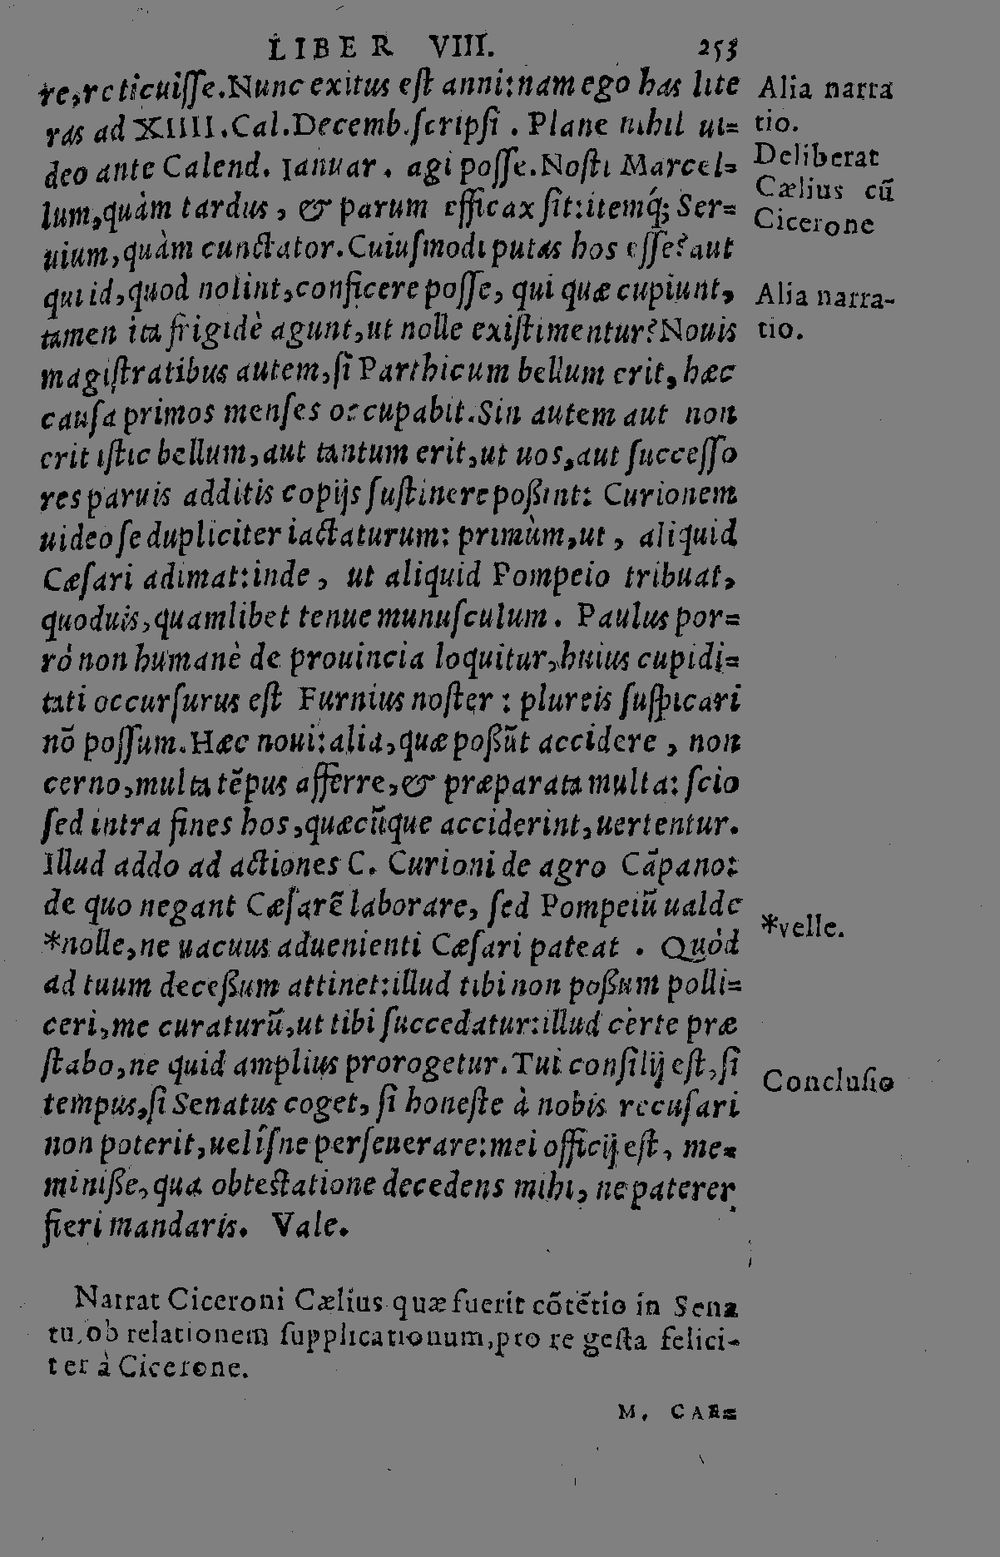 LIBER VIII. 253
re, reticuisse. Nunc exitus est anni: nam ego has lite
ras ad XIIII. Cal. Decemb. scripsi. Plane nihil ui=
deo ante Calend. Ianuar. agi posse. Nosti Marcel=
lum, quàm tardus, & parum efficax sit: itemq́; Ser=
uium, quàm cunctator. Cuiusmodi putas hos esse? aut
qui id, quod nolint, conficere posse, qui quæ cupiunt,
tamen ita frigidè agunt, ut nolle existimentur? Nouis
magistratibus autem, si Parthicum bellum erit, hæc
causa primos menses occupabit. Sin autem aut non
erit istic bellum, aut tantum erit, ut uos, aut successo
res paruis additis copijs sustinere poßint: Curionem
uideo se dupliciter iactaturum: primùm, ut, aliquid
Cæsari adimat: inde, ut aliquid Pompeio tribuat,
quoduis, quamlibet tenue munusculum. Paulus por=
rò non humanè de prouincia loquitur, huius cupidi=
tati occursurus est Furnius noster: plureis suspicari
nõ possum. Hæc noui: alia, quæ poßũt accidere, non
cerno, multa tẽpus afferre, & præparata multa: scio
sed intra fines hos, quæcũque acciderint, uertentur.
Illud addo ad actiones C. Curioni de agro Cãpano:
de quo negant Cæsarẽ laborare, sed Pompeiũ ualde
*nolle, ne uacuus aduenienti Cæsari pateat. Quòd
ad tuum deceßum attinet: illud tibi non poßum polli=
ceri, me curaturũ, ut tibi succedatur: illud certe præ
stabo, ne quid amplius prorogetur. Tui consilij est, si
tempus, si Senatus coget, si honeste à nobis recusari
non poterit, uelísne perseuerare: mei officij est, me=
miniße, qua obtestatione decedens mihi, ne paterer
fieri mandaris. Vale.
Alia narra
tio.
Deliberat
Cælius cũ
Cicerone
Alia narra-
tio.
*velle.
Conclusio
Narrat Ciceroni Cælius quæ fuerit cõtẽtio in Sena
tu, ob relationem supplicationum, pro re gesta felici-
ter à Cicerone.
M. CAE=